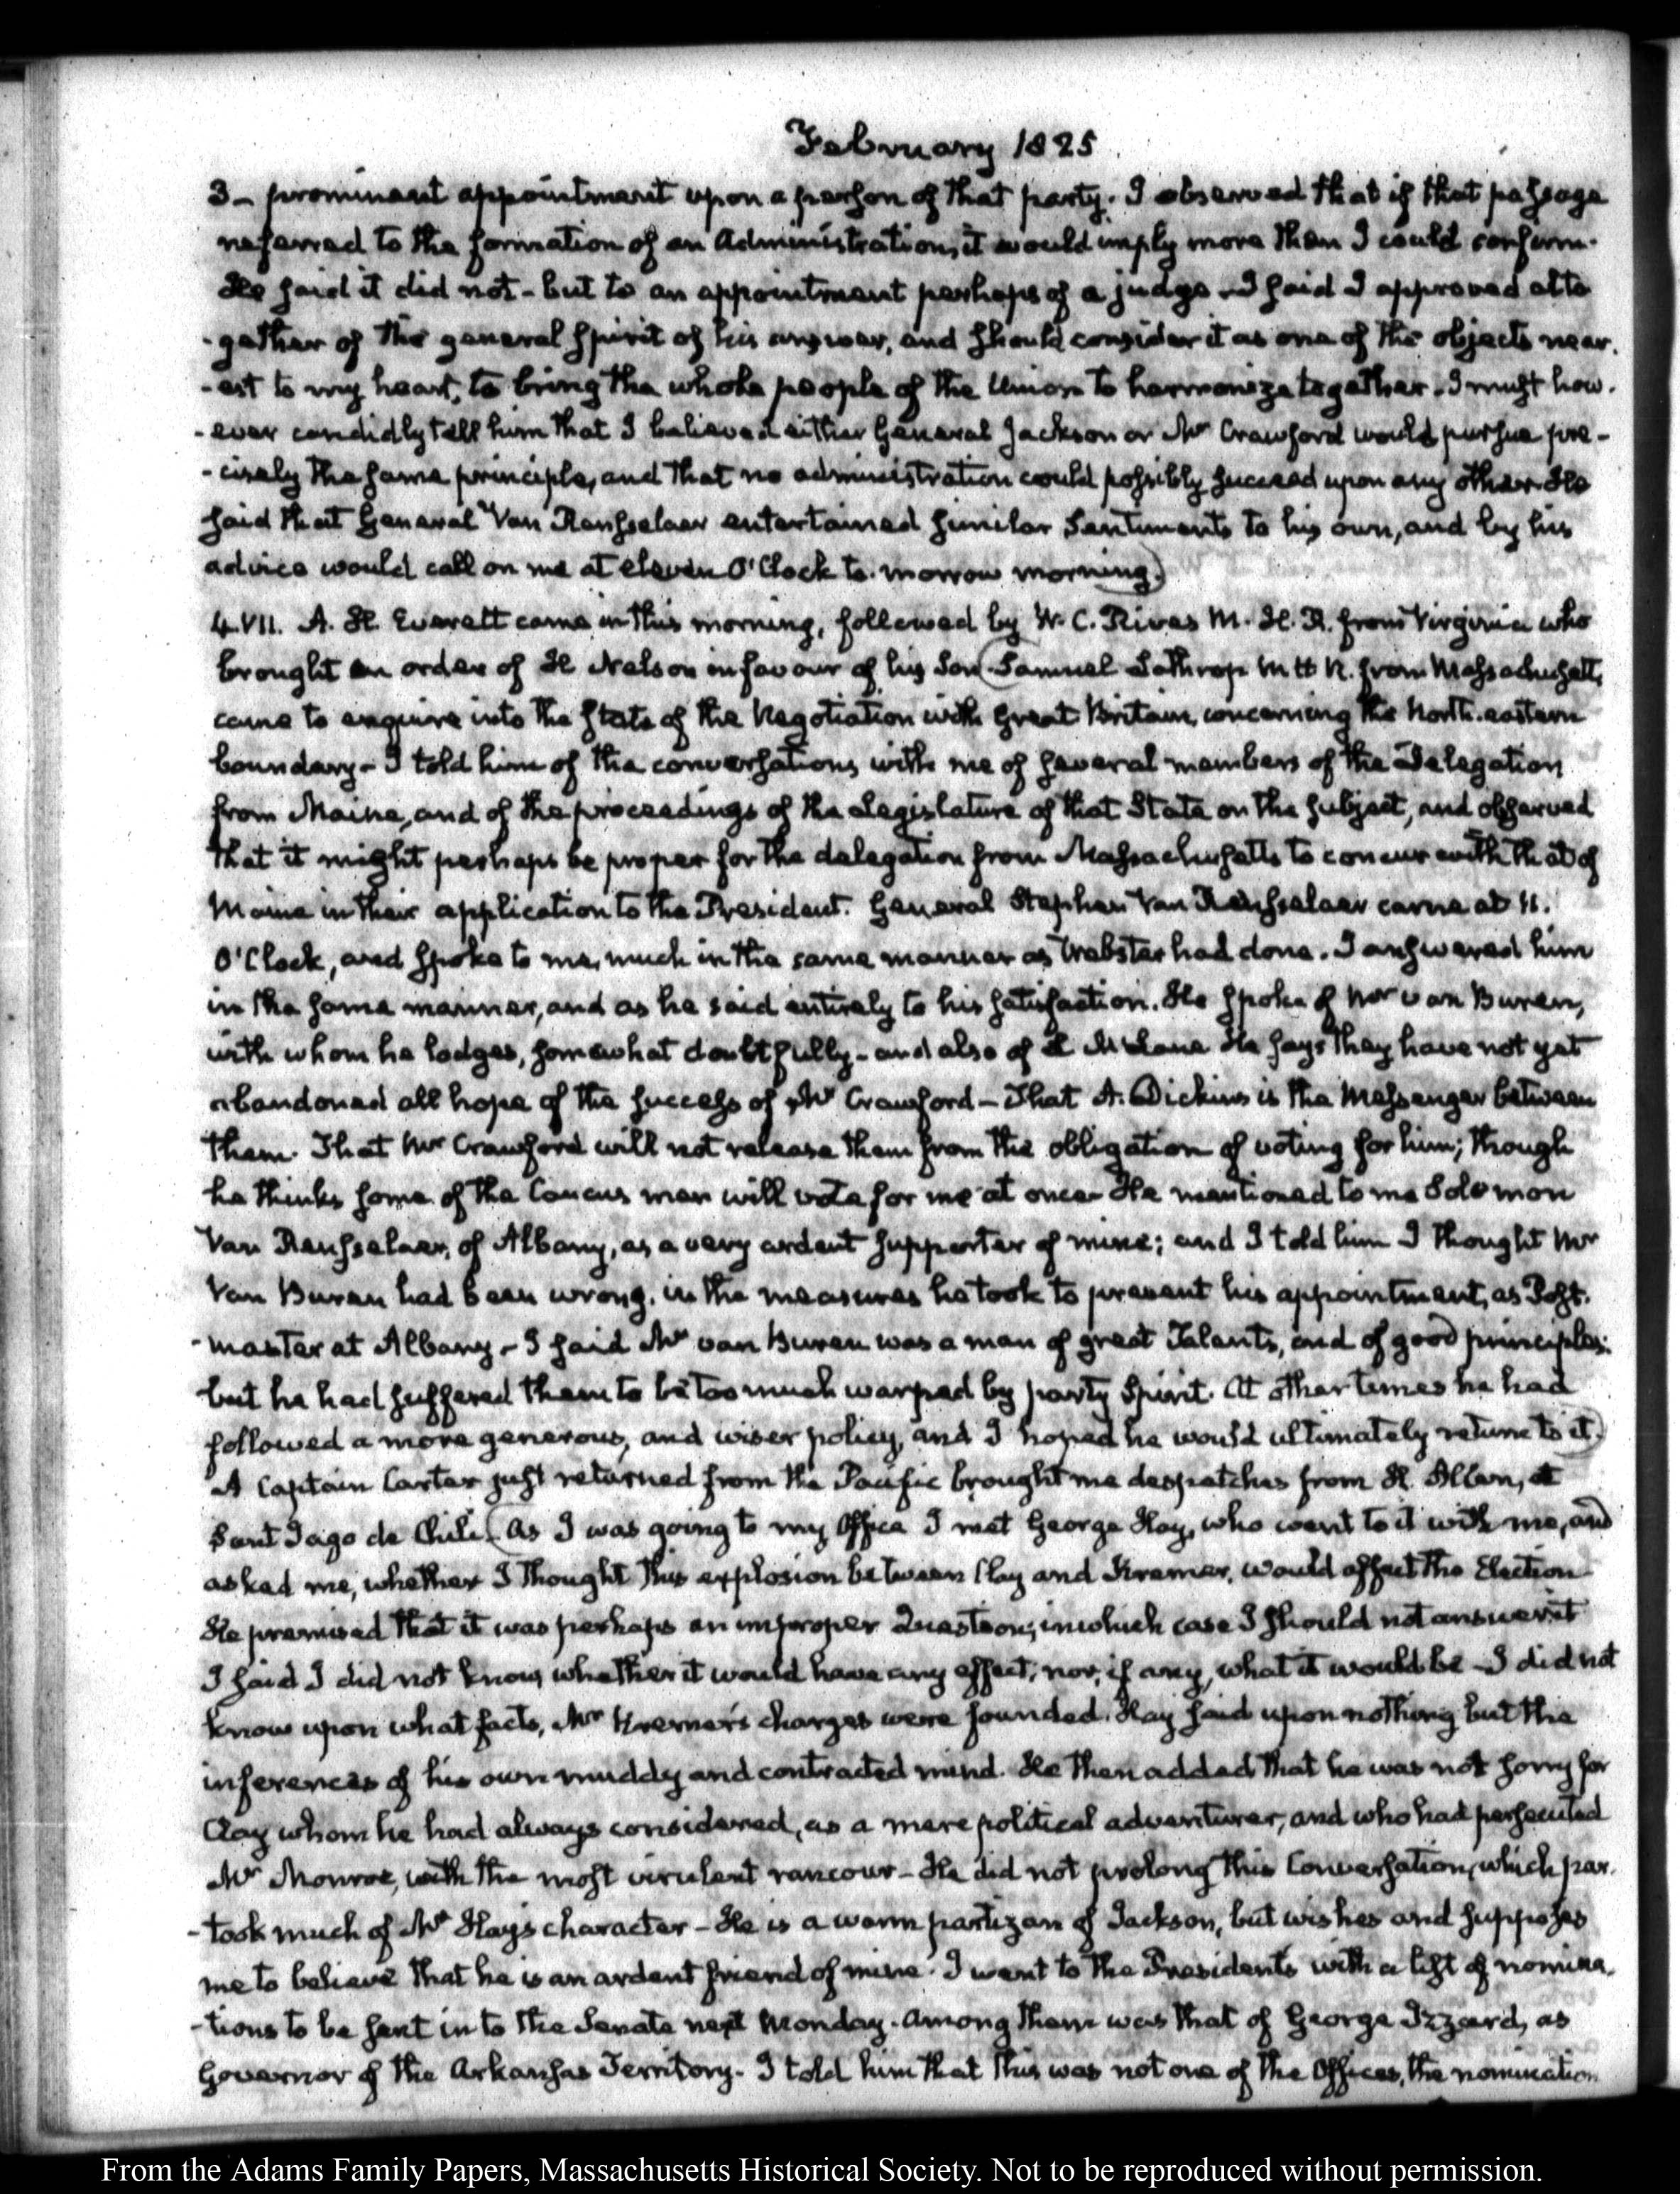 February 1825
3- prominent appointment upon a person of that party. I observed that if that passage
referred to the formation of an Administration, it would imply more than I could confirm.
He said it did not - but to an appointment perhaps of a judge - I said I approved alto
-gether of the general spirit of his answer, and should consider it as one of the objects near.
-est to my heart, to bring the whole people of the Union to harmonize together. I must how.
-ever candidly tell him that I believed either General Jackson or Mr Crawford would pursue pre-
-cisely the same principle, and that no administration could possibly succeed upon any other. He
said that General Van Rensselaer entertained similar sentiments to his own, and by his
advice would call on me at eleven O'Clock to-morrow morning.)
4. VII. A. H. Everett came in this morning, followed by W. C. Rives M. H. R. from Virginia who
brought an order of H Nelson in favour of his Son (Samuel Lathrop M H R. from Massachusetts,
came to enquire into the state of the Negotiation with Great Britain, concerning the North-eastern
boundary - I told him of the conversations with me of several members of the Delegation
from Maine, and of the proceedings of the Legislature of that State on the subject, and observed
that it might perhaps be proper for the delegation from Massachusetts to concur with that of
Maine in their application to the President. General Stephen Van Rensselaer came at 11.
O'Clock, and spoke to me, much in the same manner as Webster had done. I answered him
in the same manner, and as he said entirely to his satisfaction. He spoke of Mr van Buren,
with whom he lodges, somewhat doubtfully - and also of L McLane He says they have not yet
abandoned all hope of the success of Mr Crawford - That A. Dickins is the Messenger between
them. That Mr Crawford will not release them from the obligation of voting for him; though
he thinks some of the Caucus men will vote for me at once - He mentioned to me Solomon
Van Rensselaer, of Albany, as a very ardent supporter of mine; and I told him I thought Mr
Van Buren had been wrong, in the measures he took to prevent his appointment, as Post.
-master at Albany - I said Mr van Buren was a man of great Talents, and of good principles:
but he had suffered them to be too much warped by party Spirit. At other times he had
followed a more generous, and wiser policy, and I hoped he would ultimately return to it.)
A Captain Carter just returned from the Pacific brought me despatches from H. Allen, at
Sant Iago de Chili. (As I was going to my Office I met George Hay, who went to it with me, and
asked me, whether I thought this explosion between Clay and Kremer, would affect the Election
He premised that it was perhaps an improper Question; in which case I should not answer it
I said I did not know whether it would have any effect; nor, if any, what it would be - I did not
know upon what facts, Mr Kremer's charges were founded. Hay said upon nothing but the
inferences of his own muddy and contracted mind. He then added that he was not sorry for
Clay whom he had always considered, as a mere political adventurer, and who had persecuted
Mr Monroe, with the most virulent rancour - He did not prolong this Conversation, which par.
-took much of Mr Hay's character - He is a warm partizan of Jackson, but wishes and supposes
me to believe that he is an ardent friend of mine. I went to the Presidents with a list of nomina.
-tions to be sent in to the Senate next Monday. Among them was that of George Izzard, as
Governor of the Arkansas Territory. I told him that this was not one of the Offices, the nomination
From the Adams Family Papers, Massachusetts Historical Society. Not to be reproduced without permission.